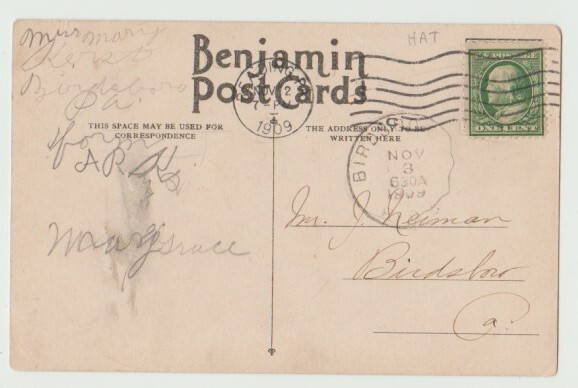 Miss Mary
Kerst
Birdsboro
Pa
form
A. R. K.
Mary Grace
HAT
Benjamin
Post Cards
THIS SPACE MAY BE USED FOR
CORRESPONDENCE
THE ADDRESS ONLY TO BE
WRITTEN HERE
NOV 2
1909
U.S. POSTAGE
ONE CENT
NOV
3
630A
1909
Mr. J. Neiman
Birdsboro
Pa.